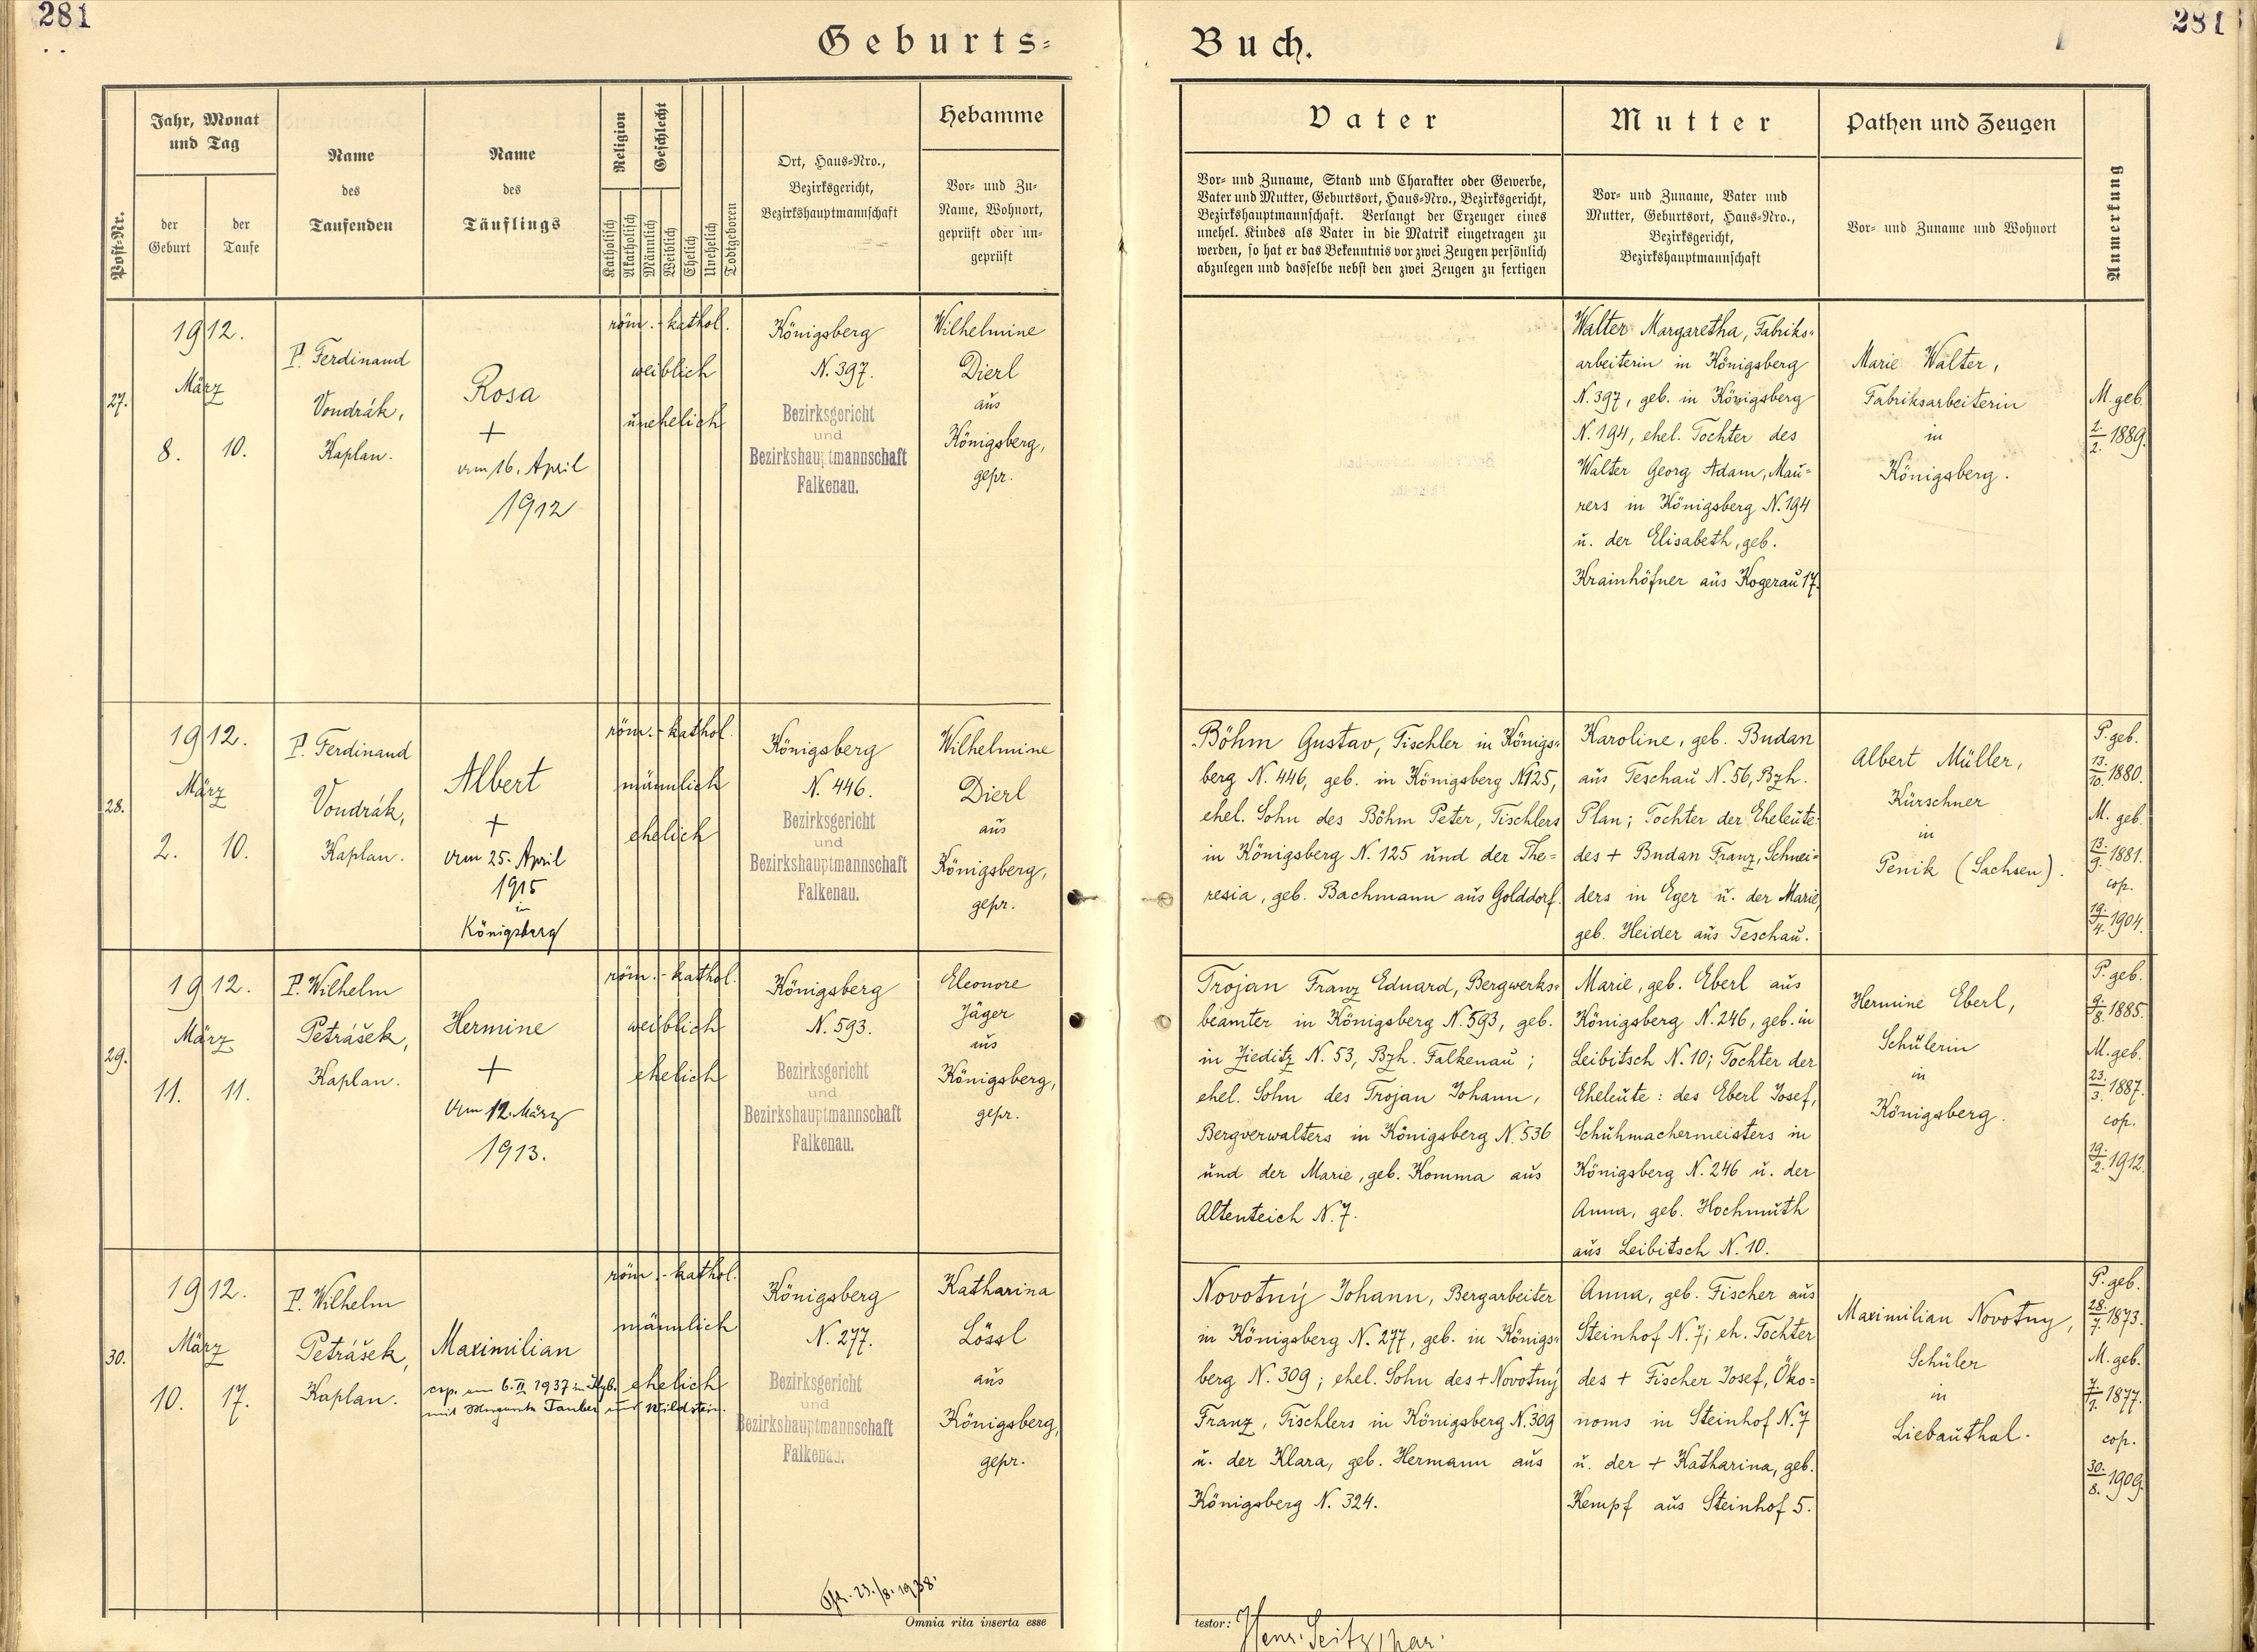 281
281
Geburts=
Buch.
Post=Nr.
Jahr, Monat
und Tag
der
Geburt
der
Taufe
Name
des
Taufenden
Name
des
Täuflings
Religion
Katholisch
Akatholisch
Geschlecht
Männlich
Weiblich
Ehelich
Unehelich
Todtgeboren
Ort, Haus=Nro.,
Bezirksgericht,
Bezirkshauptmannschaft
Hebamme
Vor= und Zu=
Name, Wohnort,
geprüft oder un=
geprüft
Vater
Vor= und Zuname, Stand und Charakter oder Gewerbe,
Vater und Mutter, Geburtsort, Haus=Nro., Bezirksgericht,
Bezirkshauptmannschaft. Verlangt der Erzeuger eines
unehel. Kindes als Vater in die Matrik eingetragen zu
werden, so hat er das Bekenntnis vor zwei Zeugen persönlich
abzulegen und dasselbe nebst den zwei Zeugen zu fertigen
Mutter
Vor= und Zuname, Vater und
Mutter, Geburtsort, Haus=Nro.,
Bezirksgericht,
Bezirkshauptmannschaft
Pathen und Zeugen
Vor= und Zuname und Wohnort
Anmerkung
27.
1912.
März
8.
10.
P. Ferdinand
Vondrák,
Kaplan.
Rosa
+
am 16. April
1912
röm.-kathol.
weiblich
unehelich
Königsberg
N. 397.
Bezirksgericht
und
Bezirkshauptmannschaft
Falkenau.
Wilhelmine
Dierl
aus
Königsberg,
gepr.
Walter Margaretha, Fabriks=
arbeiterin in Königsberg
N. 397, geb. in Königsberg
N. 194, ehel. Tochter des
Walter Georg Adam, Mau=
rers in Königsberg N. 194
u. der Elisabeth, geb.
Krainhöfner aus Kogerau 17.
Marie Walter,
Fabriksarbeiterin
in
Königsberg.
M. geb.
2./2. 1889.
28.
1912.
März
2.
10.
P. Ferdinand
Vondrák,
Kaplan.
Albert
+
am 25. April
1915
in
Königsberg
röm.-kathol.
männlich
ehelich
Königsberg
N. 446.
Bezirksgericht
und
Bezirkshauptmannschaft
Falkenau.
Wilhelmine
Dierl
aus
Königsberg,
gepr.
Böhm Gustav, Tischler in Königs=
berg N. 446, geb. in Königsberg N125,
ehel. Sohn des Böhm Peter, Tischlers
in Königsberg N. 125 und der The=
resia, geb. Bachmann aus Golddorf.
Karoline, geb. Budan
aus Teschau N. 56, Bzh.
Plan; Tochter der Eheleute:
des + Budan Franz, Schnei=
ders in Eger u. der Marie,
geb. Heider aus Teschau.
Albert Müller,
Kürschner
in
Penik (Sachsen).
P. geb.
13./10. 1880.
M. geb.
13./9. 1881.
cop.
19./4. 1904.
29.
1912.
März
11.
11.
P. Wilhelm
Petrášek,
Kaplan.
Hermine
+
am 12. März
1913.
röm.-kathol.
weiblich
ehelich
Königsberg
N. 593.
Bezirksgericht
und
Bezirkshauptmannschaft
Falkenau.
Eleonore
Jäger
aus
Königsberg,
gepr.
Trojan Franz Eduard, Bergwerks=
beamter in Königsberg N. 593, geb.
in Zieditz N. 53, Bzh. Falkenau;
ehel. Sohn des Trojan Johann,
Bergverwalters in Königsberg N. 536
und der Marie, geb. Komma aus
Altenteich N. 7.
Marie, geb. Eberl aus
Königsberg N. 246, geb. in
Leibitsch N. 10; Tochter der
Eheleute: des Eberl Josef,
Schuhmachermeisters in
Königsberg N. 246 u. der
Anna, geb. Hochmuth
aus Leibitsch N. 10.
Hermine Eberl,
Schülerin
in
Königsberg.
P. geb.
9./8. 1885.
M. geb.
23./3. 1887.
cop.
19./2. 1912.
30.
1912.
März
10.
17.
P. Wilhelm
Petrášek,
Kaplan.
Maximilian
cop. am 6. II 1937 in
mit Margareta Tauber aus Wildstein.
röm.-kathol.
männlich
ehelich
Königsberg
N. 277.
Bezirksgericht
und
Bezirkshauptmannschaft
Falkenau.
Katharina
Lössl
aus
Königsberg,
gepr.
Novotný Johann, Bergarbeiter
in Königsberg N. 277, geb. in Königs=
berg N. 309; ehel. Sohn des + Novotný
Franz, Tischlers in Königsberg N. 309
u. der Klara, geb. Hermann aus
Königsberg N. 324.
Anna, geb. Fischer aus
Steinhof N. 7; eh. Tochter
des + Fischer Josef, Öko=
noms in Steinhof N. 7
u. der + Katharina, geb.
Kempf aus Steinhof 5.
Maximilian Novotny,
Schüler
in
Liebauthal.
P. geb.
28./7. 1873.
M. geb.
7./7. 1877.
cop.
30./8. 1909.
23./8. 1938.
Omnia rita inserta esse
testor:
Henr. Seitz, par.